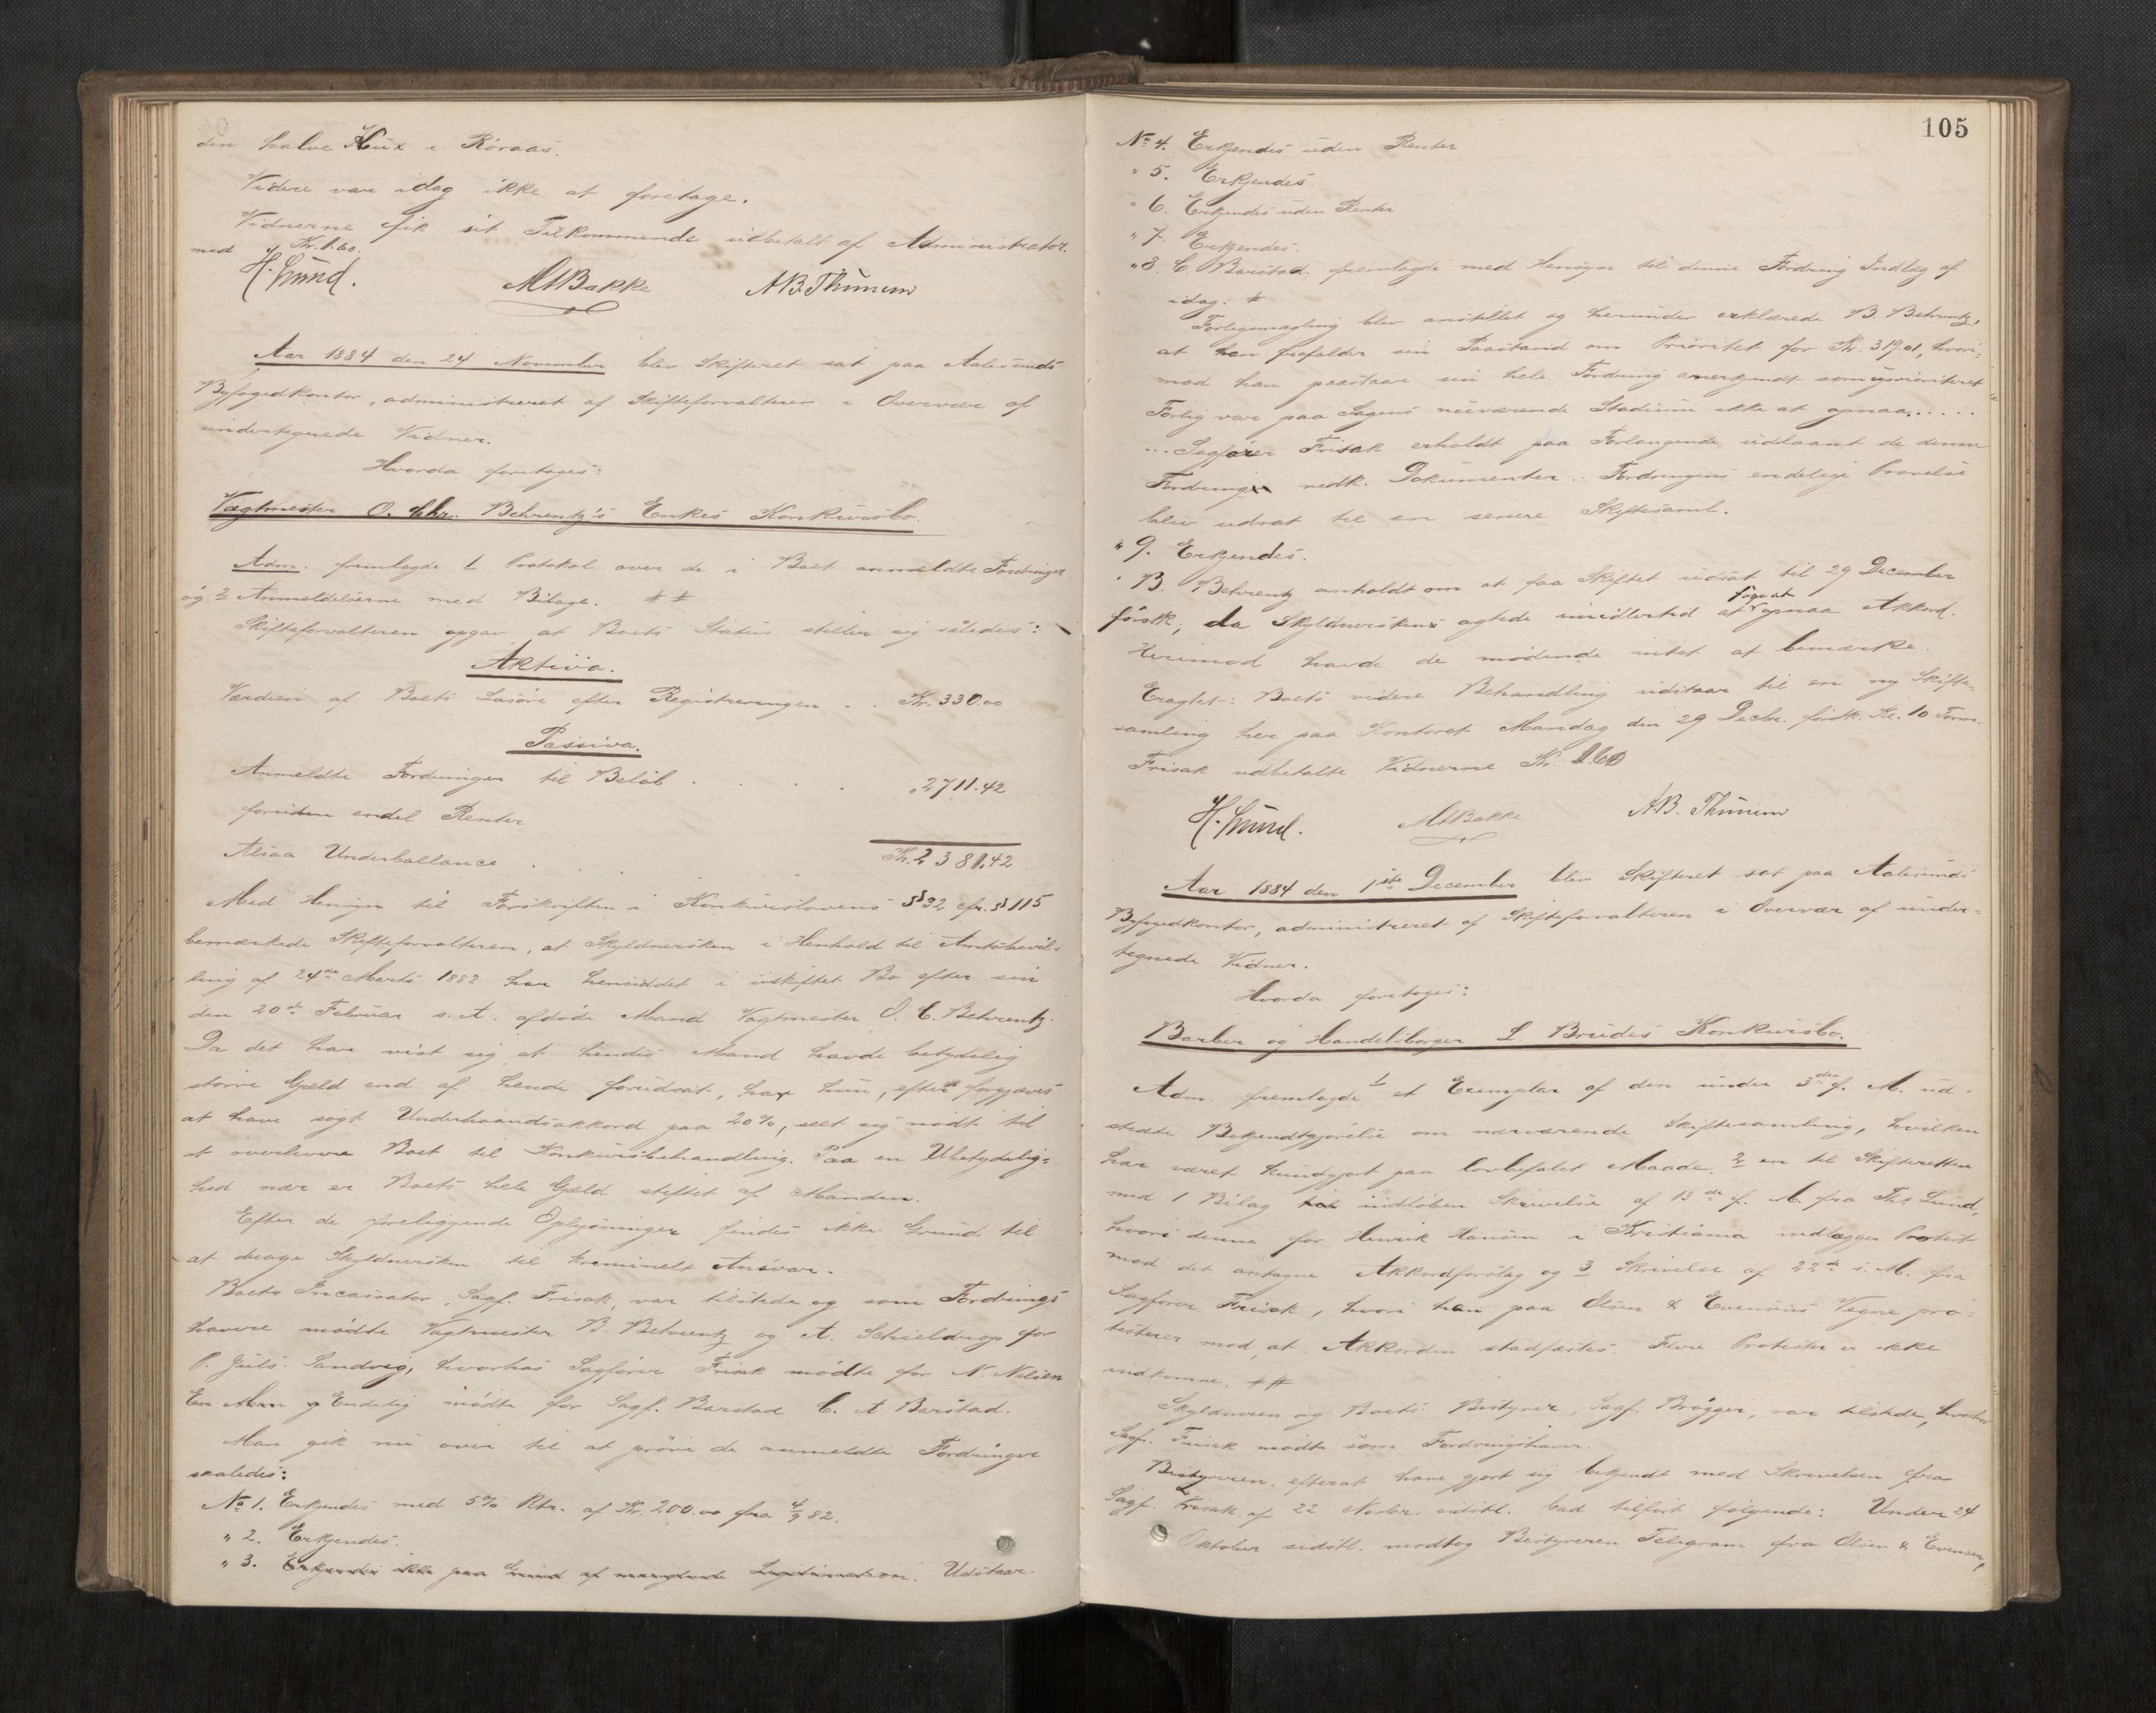 den halve Hux i Röraas.
Videre var idag ikke at foretage.
Vidnerne fik sit Tilkommende udbetalt af Administrator.
med Kr. 1.60.
H. Lund. MABakke A.B. Thunem
Aar 1884 den 24 November blev Skifteret sat paa Aalesunds
Byfogedkontor, administreret af Skifteforvalteren i Overvær af
undertegnede Vidner.
Hvorda foretoges:
Vagtmester O. Chr. Behrentz's Enkes Konkursbo.
Adm. fremlagde 1 Protokol over de i Boet anmeldte Fordringer
og 2 Anmeldelserne med Bilage. ‡ ‡
Skifteforvalteren opgav at Boets Status stiller sig således:
Aktiva.
Værdien af Boets Løsøre efter Registreringen . . Kr. 330.00
Passiva.
Anmeldte Fordringer til Beløb . . . . „ 2711.42
foruden endel Renter
Altsaa Underballance . . . Kr. 2381.42
Med Hensyn til Forskriften i Konkurslovens § 32 cfr. § 115
bemærkede Skifteforvalteren, at Skyldnersken i Henhold til Amtsbevil-
ling af 24de Marts 1882 har hensiddet i uskiftet Bo efter sin
den 20de Februar s. A. afdöde Mand Vagtmester O. C. Behrentz.
Da det har vist sig at hendes Mand havde betydelig
större Gjæld end af hende forudsat, har hun, efter forgjæves
at have søgt Underhaandsakkord paa 20%, seet sig nödt til
at overlevere Boet til Konkursbehandling. Paa en Ubetydelig-
hed nær er Boets hele Gjæld stiftet af Manden.
Efter de foreliggende Oplysninger findes ikke Grund til
at drage Skyldnersken til kriminelt Ansvar.
Boets Incassator, Sagf. Frisak, var tilstede og som Fordrings
havere mödte Vagtmester B. Behrentz og A. Schieldrop for
P. Juls. Sandvig, hvorhos Sagförer Frisak mödte for N. Nilsen
Endelig mödte for Sagf. Barstad C. A. Barstad.
Man gik nu over til at pröve de anmeldte Fordringer
saaledes:
No 1. Erkjendes med 5% Rtr. af Kr. 200.00 fra 4/9 82.
„ 2. Erkjendes.
„ 3. Erkjendes ikke paa Grund af manglende Legitimation. Udstaar.
105
No 4. Erkjendes uden Renter
„ 5. Erkjendes.
„ 6. Erkjendes uden Renter
„ 7. Erkjendes.
„ 8. C. Barstad fremlagde med Hensyn til denne Fordring Indlæg af
idag. ‡
Forligsmægling blev anstillet og herunder erklærede B. Behrentz,
at han frafalder sin Paastand om Prioritet for Kr. 319.01, hvori-
mod han paastaar sin hele Fordring anerkjendt som uprioriteret
Forlig var paa Sagens nuværende Stadium ikke at opnaa. . . . .
. . . Sagförer Frisak erholdt paa Forlangende udlaant de denne
Fordring vedk. Dokumenter. Fordringens endelige Prövelse
blev udsat til en senere Skiftesaml.
„ 9. Erkjendes.
B. Behrentz anholdt om at faa Skiftet udsat til 29 December
förstk., da Skyldnersken agtede imidlertid at söge at opnaa Akkord.
Herimod havde de mödende intet at bemærke.
Eragtet: Boets videre Behandling udstaar til en ny Skifte-
samling her paa Kontoret Mandag den 29 Decbr. förstk. Kl. 10 Form.
Frisak udbetalte Vidnerne Kr. 1.60
H. Lund. MABakke A.B. Thunem
Aar 1884 den 1ste December blev Skifteret sat paa Aalesunds
Byfogedkontor, administreret af Skifteforvalteren i Overvær af under-
tegnede Vidner.
Hvorda foretoges:
Barber og Handelsborger L. Brudes Konkursbo.
Adm. fremlagde 1 et Exemplar af den under 3die f. M. ud-
stedte Bekjendtgjörelse om nærværende Skiftesamling, hvilken
har været kundgjort paa lovbefalet Maade, 2 en til Skifteretten
med 1 Bilag indlöben Skrivelse af 13de f. M. fra Ths. Lund,
hvori denne for Henrik Hansen i Kristiania nedlægger Protest
mod det antagne Akkordforslag og 3 Skrivelse af 22de s. M. fra
Sagförer Frisak, hvori han paa Olsen & Evensens Vegne pro-
testerer mod, at Akkorden stadfæstes. Flere Protester er ikke
indkomne. ‡‡
Skyldneren og Boets Bestyrer, Sagf. Brögger, var tilstede, hvorhos
Sagf. Frisak mödte som Fordringshaver.
Bestyreren, efterat have gjort sig bekjendt med Skrivelsen fra
Sagf. Frisak af 22 Novbr. sidstl. bad tilfört fölgende: Under 24
Oktober sidstl. modtog Bestyreren Telegram fra Olsen & Evensen,